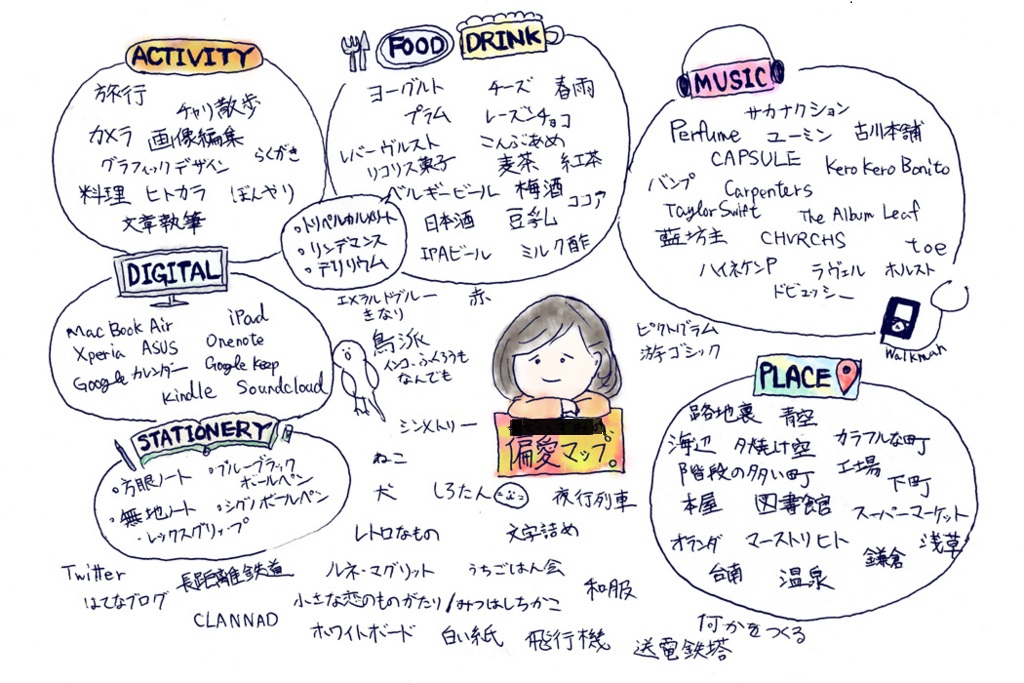 ACTIVITY
旅行
チャリ散歩
カメラ 画像編集
グラフィックデザイン らくがき
料理 ヒトカラ ぼんやり
文章執筆
FOOD DRINK
ヨーグルト チーズ 春雨
プラム レーズンチョコ
レバーヴルスト こんぶあめ
リコリス菓子 麦茶 紅茶
ベルギービール 梅酒 ココア
日本酒 豆乳
IPAビール ミルク酢
・トリペルカルメリート
・リンデマンス
・デリリウム
MUSIC
サカナクション
Perfume ユーミン 古川本舗
CAPSULE Kero Kero Bonito
バンプ Carpenters
Taylor Swift The Album Leaf
藍坊主 CHVRCHS toe
ハイネケンP ラヴェル ホルスト
ドビュッシー
Walkman
DIGITAL
Mac Book Air iPad
Xperia ASUS Onenote
Googleカレンダー Google Keep
Kindle Soundcloud
エメラルドブルー 赤
きなり
鳥派
インコ、ふくろうも
なんでも
ピクトグラム
游ゴシック
偏愛マップ。
PLACE
路地裏 青空
海辺 夕焼け空 カラフルな町
階段の多い町 工場 下町
本屋 図書館 スーパーマーケット
オランダ マーストリヒト 鎌倉 浅草
台南 温泉
STATIONERY
・方眼ノート ・ブルーブラック
ボールペン
・無地ノート ・シグノボールペン
・レックスグリップ
シンメトリー
ねこ
犬 しろたん 夜行列車
レトロなもの 文字詰め
Twitter 長距離鉄道 ルネ・マグリット うちごはん会
はてなブログ 小さな恋のものがたり/みつはしちかこ 和服
CLANNAD ホワイトボード 白い紙 飛行機 送電鉄塔
何かをつくる